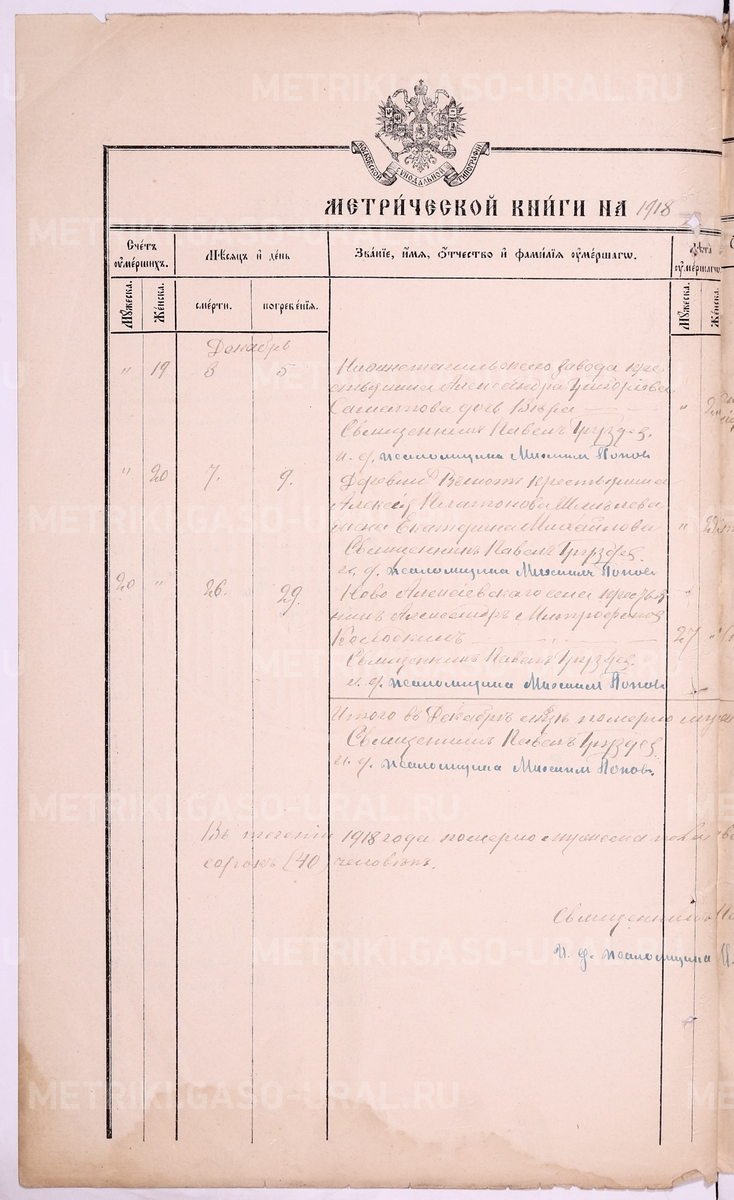 METRIKI.GASO-URAL.RU
МОСКОВСКОЙ СѴНОДАЛЬНОЙ ТИПОГРАФІИ
МЕТРИ́ЧЕСКОЙ КНИ́ГИ НА 1918
Сче́тъ ᲂу҆ме́ршихъ.
Мѣсяцъ и҆ де́нь
Зва́нїе, и҆́мѧ, ѻ҆́тчество и҆ фами́лїѧ ᲂу҆ме́ршагѡ.
Лѣ́та ᲂу҆ме́ршагѡ
Мꙋ́жеска. Же́нска.
сме́рти. погребе́нїѧ.
Мꙋ́жеска. Же́нска.
Декабрь
" 19 3 5 Нижнетагильского завода кре
стьянина Александра Григорьева
дочь Вѣра "
Священникъ Павелъ Груздев.
и. д. псаломщика Михаил Попов
" 20 7. 9. Деревни крестьянина
Алексѣя Платонова
жена Екатерина Михайлова "
Священникъ Павелъ Груздев.
и. д. псаломщика Михаил Попов
20 " 26. 29. Ново Алексеевскаго села крестья
нинъ Александръ Митрофанов
27 "
Священникъ Павелъ Груздев.
и. д. псаломщика Михаил Попов
Итого въ Декабрѣ м-цѣ померло
Священникъ Павелъ Груздев
и. д. псаломщика Михаил Попов.
Въ теченіи 1918 года померло мужеска пола
сорокъ (40) человѣкъ.
Священникъ
И. д. псаломщика